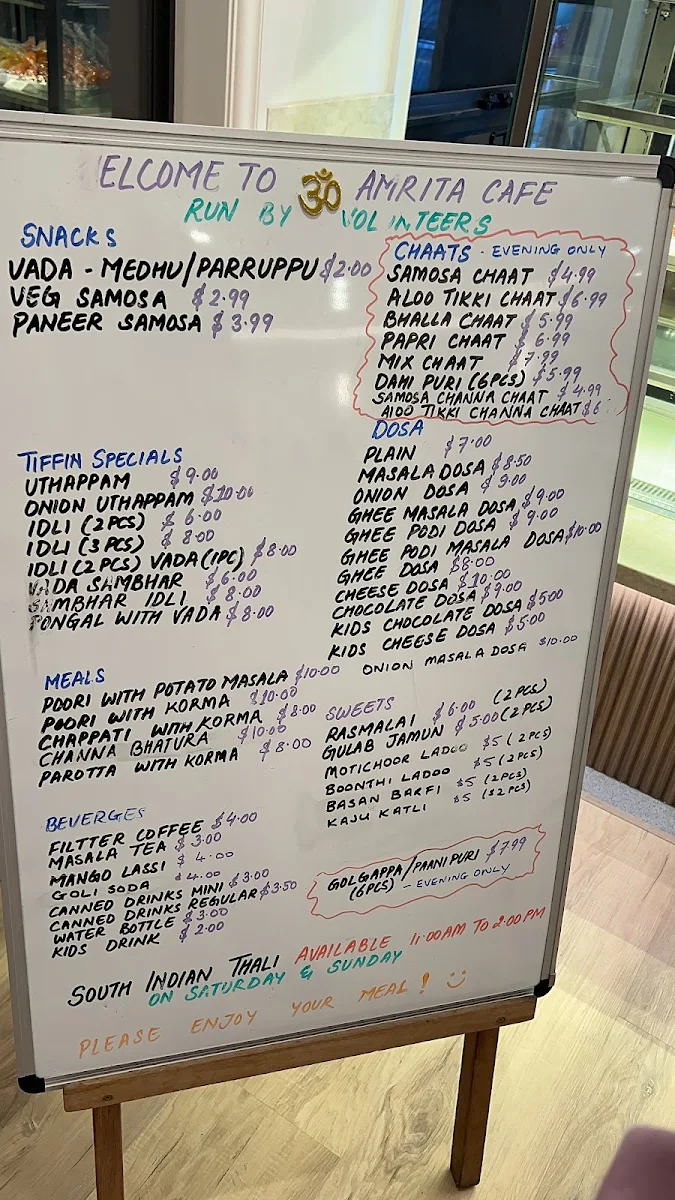 ELCOME TO ॐ AMRITA CAFE
RUN BY VOLUNTEERS
SNACKS
VADA - MEDHU/PARRUPPU $2.00
VEG SAMOSA $2.99
PANEER SAMOSA $3.99
CHAATS - EVENING ONLY
SAMOSA CHAAT $4.99
ALOO TIKKI CHAAT $6.99
BHALLA CHAAT $5.99
PAPRI CHAAT $6.99
MIX CHAAT $7.99
DAHI PURI (6PCS) $5.99
SAMOSA CHANNA CHAAT $4.99
ALOO TIKKI CHANNA CHAAT $6
TIFFIN SPECIALS
UTHAPPAM $9.00
ONION UTHAPPAM $10.00
IDLI (2PCS) $6.00
IDLI (3PCS) $8.00
IDLI (2PCS) VADA (1PC) $8.00
VADA SAMBHAR $6.00
SAMBHAR IDLI $8.00
PONGAL WITH VADA $8.00
DOSA
PLAIN $7.00
MASALA DOSA $8.50
ONION DOSA $9.00
GHEE MASALA DOSA $9.00
GHEE PODI DOSA $9.00
GHEE PODI MASALA DOSA $10.00
GHEE DOSA $8.00
CHEESE DOSA $10.00
CHOCOLATE DOSA $9.00
KIDS CHOCOLATE DOSA $5.00
KIDS CHEESE DOSA $5.00
ONION MASALA DOSA $10.00
MEALS
POORI WITH POTATO MASALA $10.00
POORI WITH KORMA $10.00
CHAPPATI WITH KORMA $8.00
CHANNA BHATURA $10.00
PAROTTA WITH KORMA $8.00
SWEETS
RASMALAI $6.00 (2PCS)
GULAB JAMUN $5.00 (2PCS)
MOTICHOOR LADOO $5 (2PCS)
BOONTHI LADOO $5 (2PCS)
BASAN BARFI $5 (2PCS)
KAJU KATLI $5 (2PCS)
BEVERGES
FILTTER COFFEE $4.00
MASALA TEA $3.00
MANGO LASSI $4.00
GOLI SODA $4.00
CANNED DRINKS MINI $3.00
CANNED DRINKS REGULAR $3.50
WATER BOTTLE $3.00
KIDS DRINK $2.00
GOLGAPPA/PAANI PURI $7.99
(6PCS) - EVENING ONLY
SOUTH INDIAN THALI AVAILABLE 11:00AM TO 2:00PM
ON SATURDAY & SUNDAY
PLEASE ENJOY YOUR MEAL!